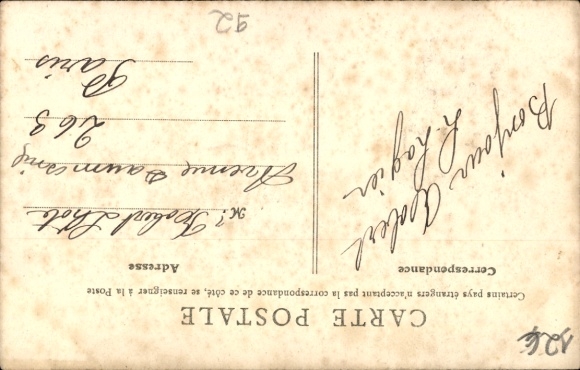 CARTE POSTALE
Certains pays étrangers n'acceptant pas la correspondance de ce côté, se renseigner à la Poste
Correspondance
Bonjour Robert
Adresse
Mr Robert
Avenue Daumesnil
263
Paris
92
12€